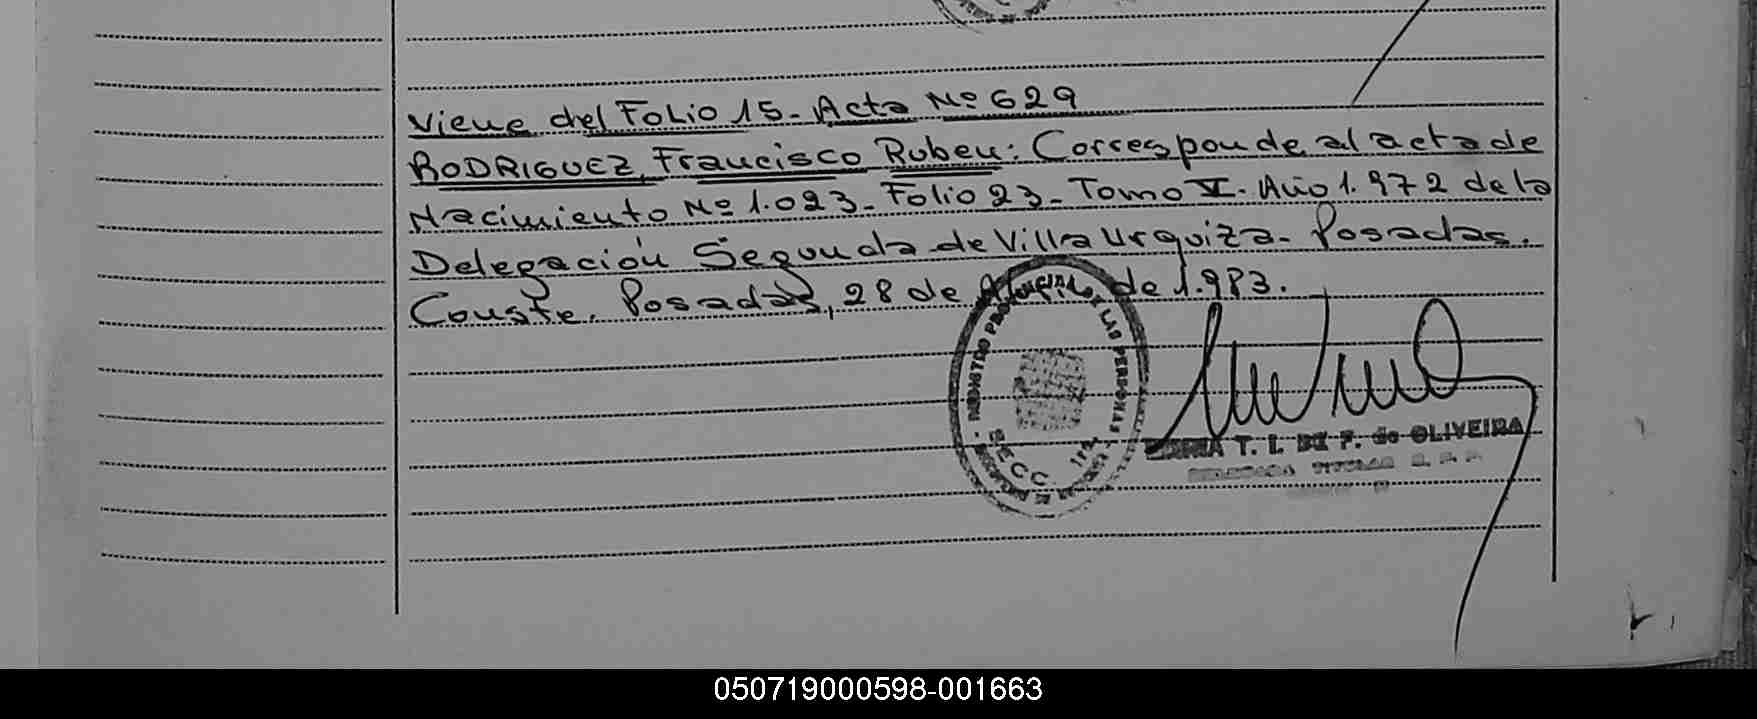 Viene del Folio 15- Acta Nº 629
RODRIGUEZ, Francisco Ruben: Corresponde al acta de
Nacimiento Nº 1.023- Folio 23- Tomo V- Año 1.972 de la
Delegación Segunda de Villa Urquiza- Posadas.
Conste. Posadas, 28 de Abril de 1.983.
REGISTRO PROVINCIAL DE LAS PERSONAS
SECC. 1ra
T. I. DE F. de OLIVEIRA
TITULAR
050719000598-001663